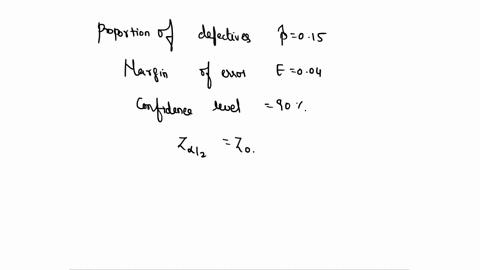 Proportion of defectives p̂=0.15
Margin of error E=0.04
Confidence level =90%.
Zα/2 =Z0.